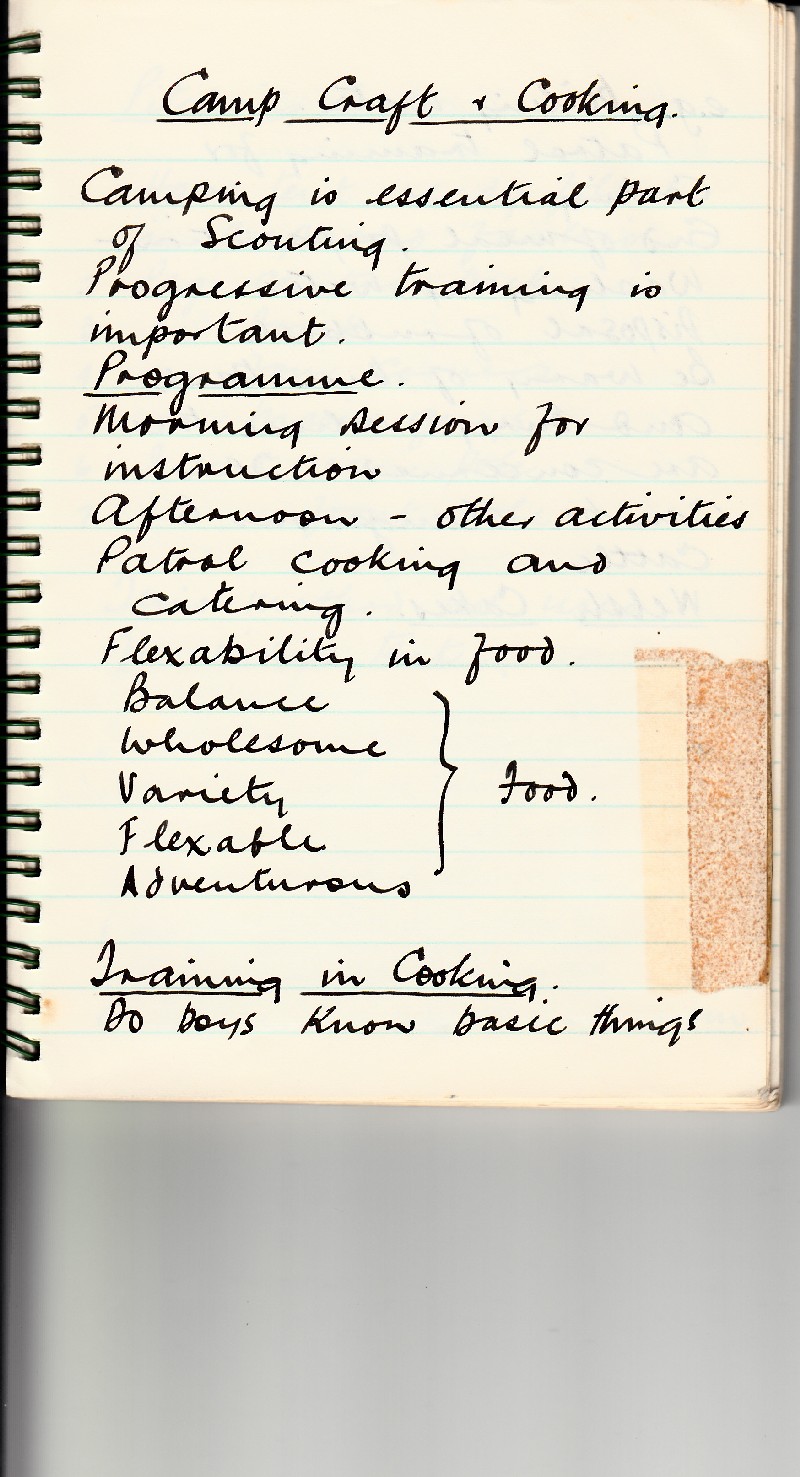 Camp Craft & Cooking.
Camping is essential part
of Scouting.
Progressive training is
important.
Programme.
Morning session for
instruction
Afternoon - other activities
Patrol cooking and
catering.
Flexability in food.
Balance
Wholesome
Variety
Flexable
Adventurous
} Food.
Training in Cooking.
Do boys know basic things